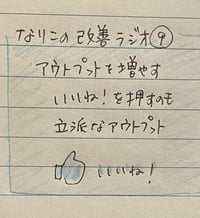 なりこの改善ラジオ⑨
アウトプットを増やす
いいね!を押すのも
立派なアウトプット
いいね!